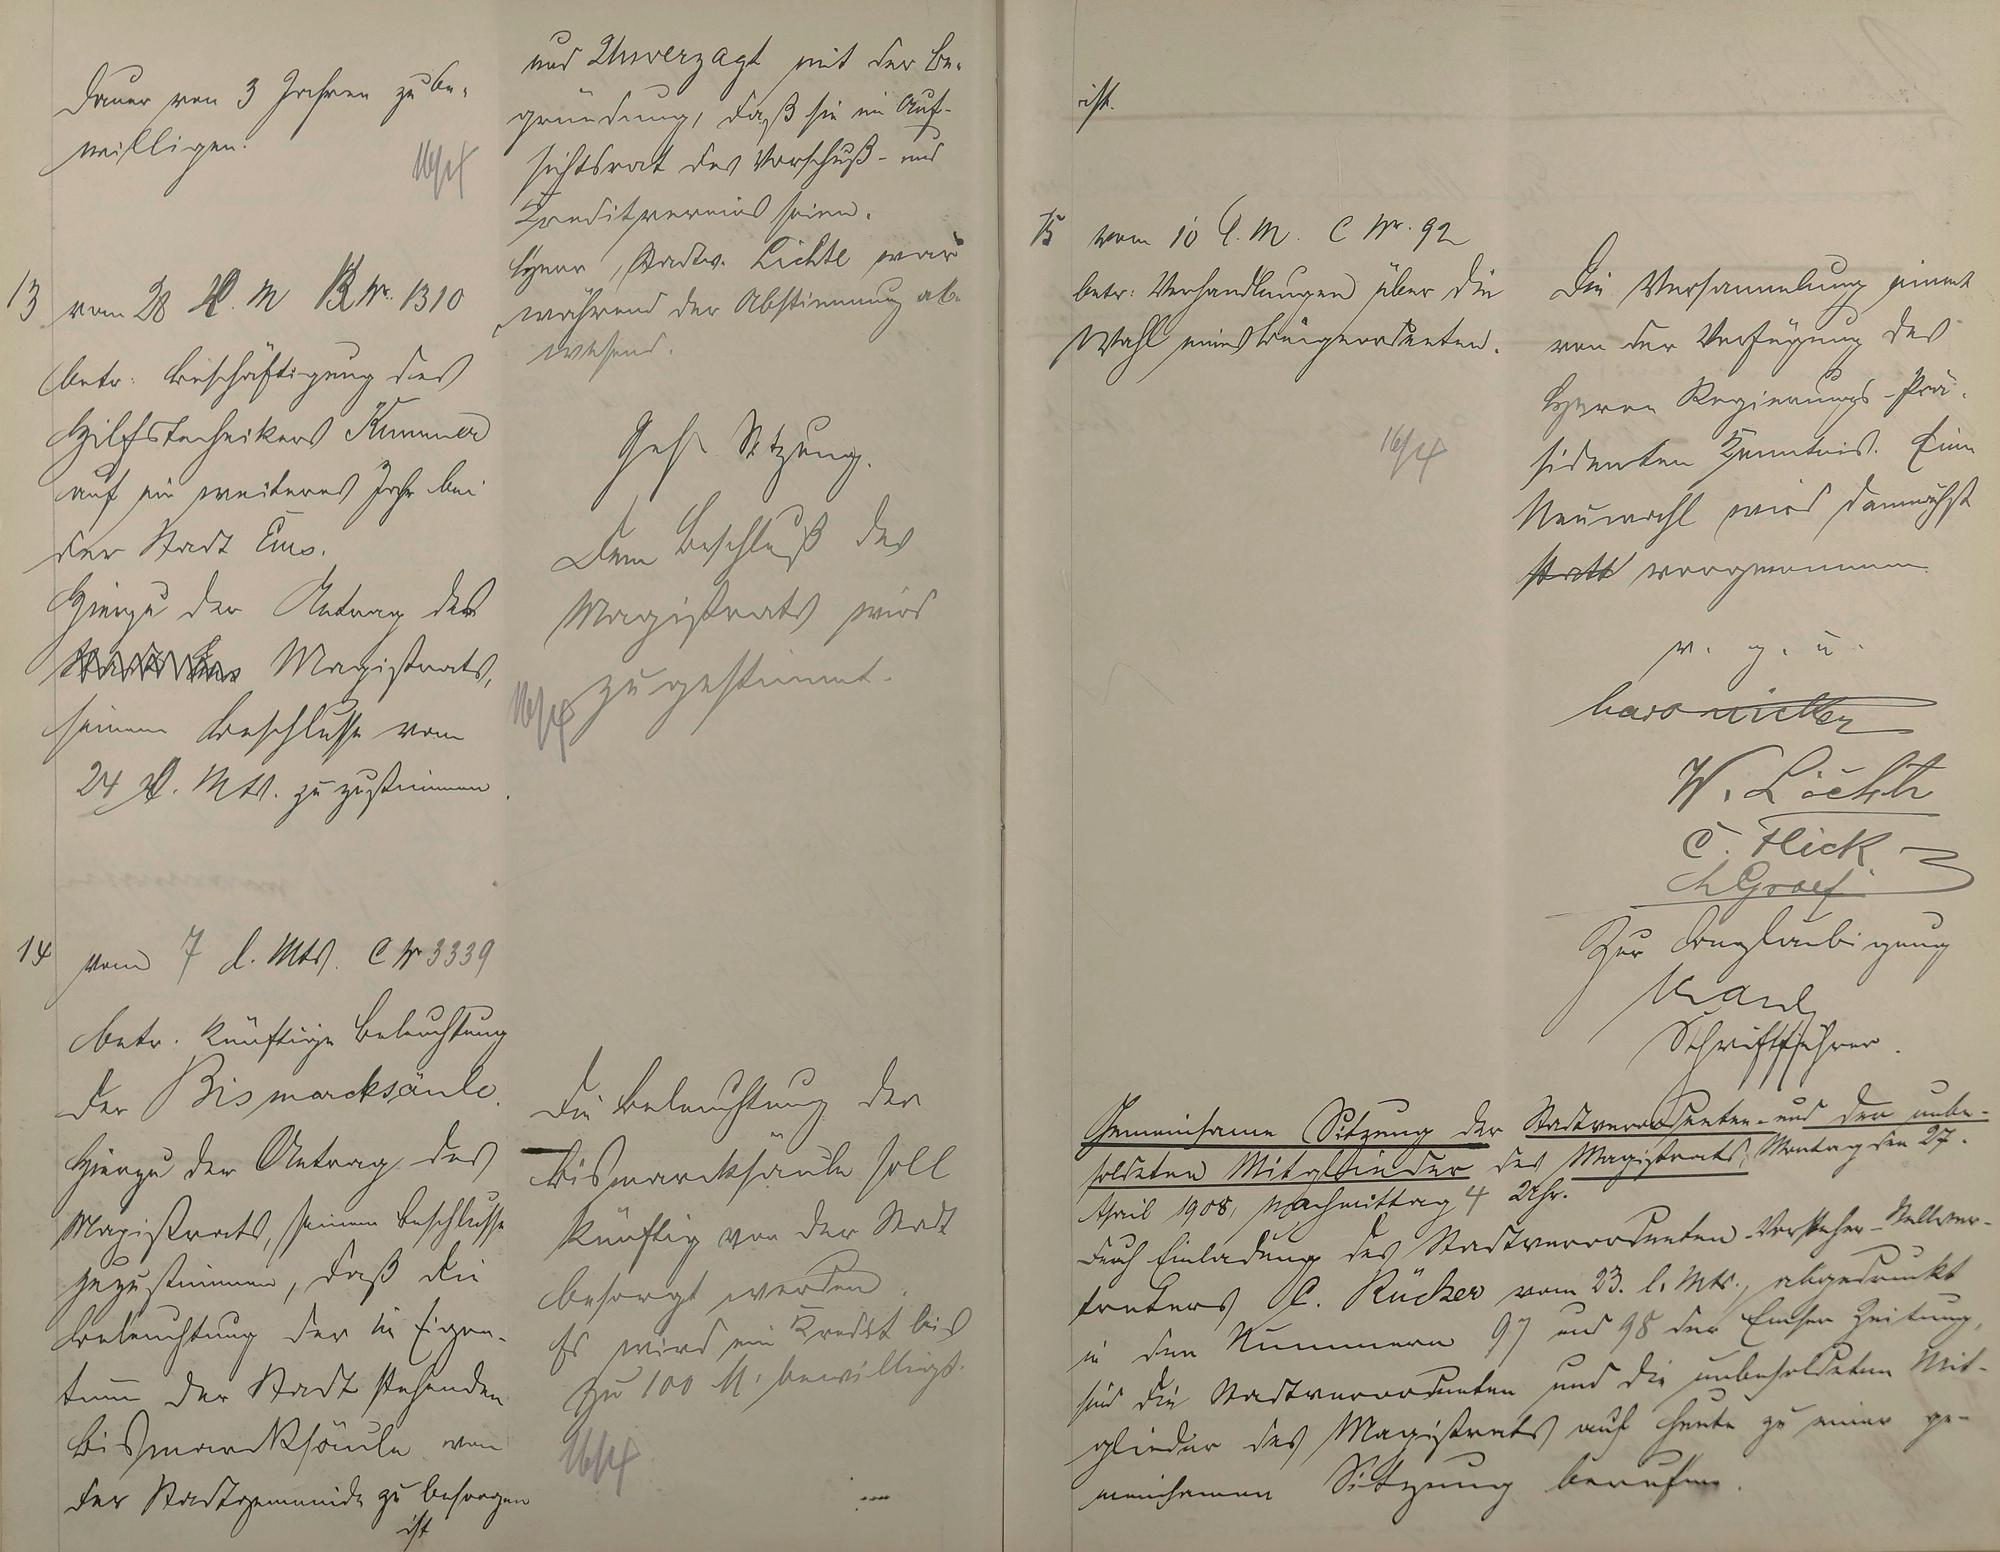 Dauer von 3 Jahren zu be-
willigen.
16/4
13 vom 28 v. M B Nr. 1310
betr. Beschäftigung des
Hilfstechnikers Kummer
auf ein weiteres Jahr bei
der Stadt Ems.
Hierzu der Antrag des
Magistrats,
seinem Beschlusse vom
24 v. Mts. zuzustimmen.
14 vom 7 d. Mts. C Nr 3339
betr. künftige Beleuchtung
der Bismarcksäule.
Hierzu der Antrag des
Magistrats, seinem Beschlusse
zuzustimmen, daß die
Beleuchtung der in Eigen-
tum der Stadt stehenden
Bismarcksäule von
der Stadtgemeinde zu besorgen
ist
und Unverzagt mit der Be-
gründung, daß sie im Auf-
sichtsrat des Vorschuß- und
Creditvereins seien.
Herr Stadtv. Lichte war
während der Abstimmung ab-
wesend.
Geh. Sitzung.
Dem Beschluß des
Magistrats wird
zugestimmt.
16/4
Die Beleuchtung der
Bismarcksäule soll
künftig von der Stadt
besorgt werden.
Es wird ein Kredit bis
zu 100 M. bewilligt.
16/4
ist.
15 vom 10 d. M. C Nr. 92
betr: Verhandlungen über die
Wahl eines Beigeordneten.
16/4
Die Versammlung nimmt
von der Verfügung des
Herrn Regierungs-Prä-
sidenten Kenntnis. Eine
Neuwahl wird demnächst
statt vorgenommen.
v. g. u.
W. Lichte
C. Flick
Ch Graef
Zur Beglaubigung
Schriftführer.
Gemeinsame Sitzung der Stadtverordneten- und der unbe-
soldeten Mitglieder des Magistrats, Montag den 27.
April 1908, nachmittag 4 Uhr.
Durch Einladung des Stadtverordneten-Vorsteher-Stellver-
treters C. Rücker vom 23. l. Mts., abgedruckt
in den Nummern 97 und 98 der Emser Zeitung,
sind die Stadtverordneten und die unbesoldeten Mit-
glieder des Magistrats auf heute zu einer ge-
meinsamen Sitzung berufen.